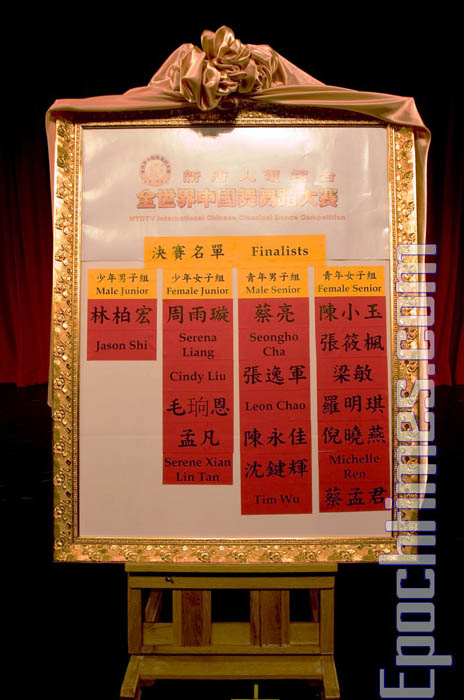 新唐人電視台
全世界中國舞舞蹈大賽
NTDTV International Chinese Classical Dance Competition
決賽名單 Finalists
少年男子組
Male Junior
林柏宏
Jason Shi
少年女子組
Female Junior
周雨璇
Serena
Liang
Cindy Liu
毛珦恩
孟凡
Serene Xian
Lin Tan
青年男子組
Male Senior
蔡亮
Seongho
Cha
張逸軍
Leon Chao
陳永佳
沈鍵輝
Tim Wu
青年女子組
Female Senior
陳小玉
張筱楓
梁敏
羅明琪
倪曉燕
Michelle
Ren
蔡孟君
Epochtimes.com